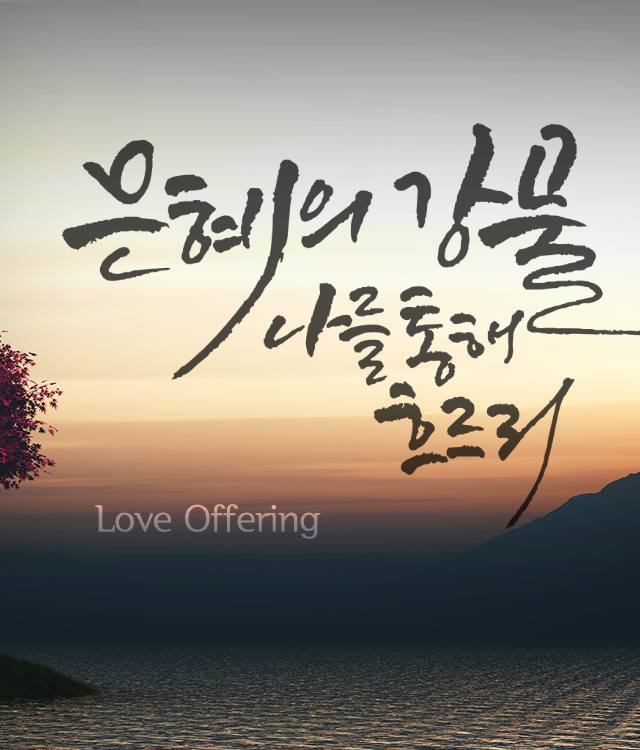 은혜의 강물
나를 통해
흐르리
Love Offering